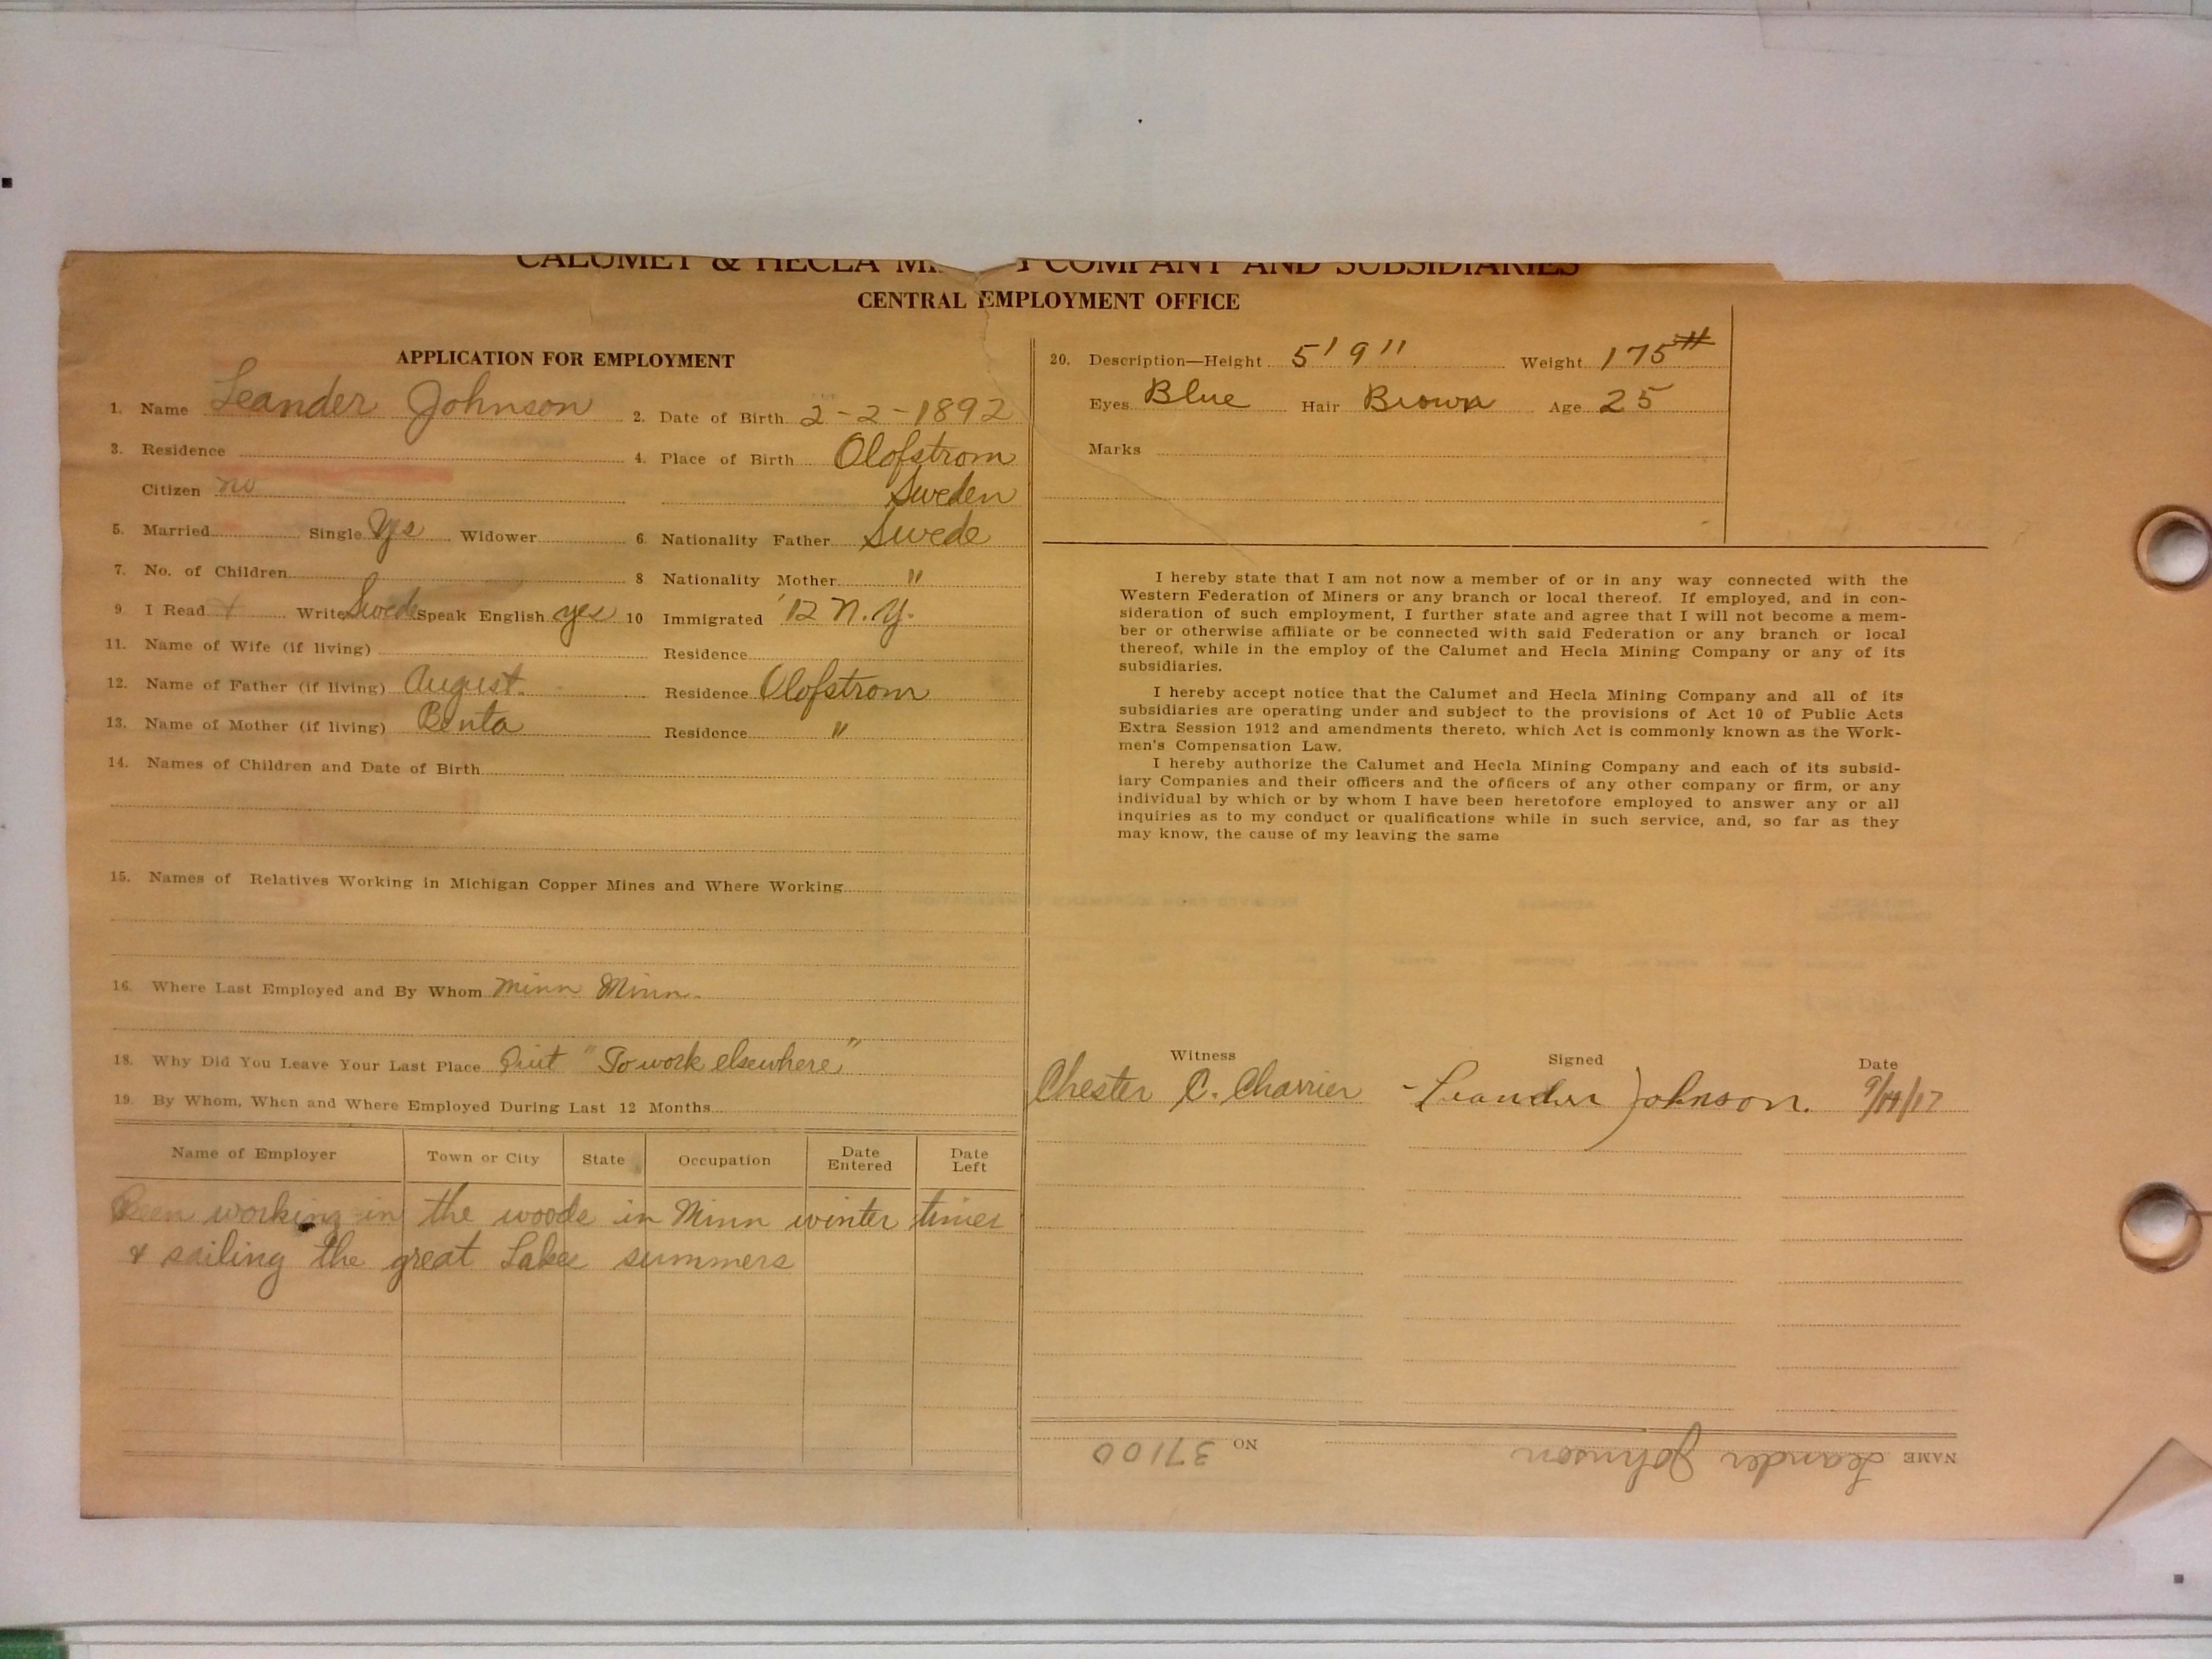 CALUMET & HECLA MI    COMPANY AND SUBSIDIARIES
CENTRAL EMPLOYMENT OFFICE
APPLICATION FOR EMPLOYMENT
1. Name Leander Johnson 2. Date of Birth 2-2-1892
3. Residence 4. Place of Birth Olofstrom
Citizen no Sweden
5. Married Single Yes Widower 6. Nationality Father Swede
7. No. of Children 8 Nationality Mother "
9. I Read & Write Swede Speak English yes 10 Immigrated '12 N.Y.
11. Name of Wife (if living) Residence
12. Name of Father (if living) August. Residence Olofstrom
13. Name of Mother (if living) Benta Residence "
14. Names of Children and Date of Birth
15. Names of Relatives Working in Michigan Copper Mines and Where Working
16. Where Last Employed and By Whom Minn Minn.
18. Why Did You Leave Your Last Place Quit "To work elsewhere"
19. By Whom, When and Where Employed During Last 12 Months
Name of Employer Town or City State Occupation Date Entered Date Left
Been working in the woods in Minn winter times
& sailing the great Lakes summers
20. Description—Height 5' 9" Weight 175#
Eyes Blue Hair Brown Age 25
Marks
I hereby state that I am not now a member of or in any way connected with the
Western Federation of Miners or any branch or local thereof. If employed, and in con-
sideration of such employment, I further state and agree that I will not become a mem-
ber or otherwise affiliate or be connected with said Federation or any branch or local
thereof, while in the employ of the Calumet and Hecla Mining Company or any of its
subsidiaries.
I hereby accept notice that the Calumet and Hecla Mining Company and all of its
subsidiaries are operating under and subject to the provisions of Act 10 of Public Acts
Extra Session 1912 and amendments thereto, which Act is commonly known as the Work-
men's Compensation Law.
I hereby authorize the Calumet and Hecla Mining Company and each of its subsid-
iary Companies and their officers and the officers of any other company or firm, or any
individual by which or by whom I have been heretofore employed to answer any or all
inquiries as to my conduct or qualifications while in such service, and, so far as they
may know, the cause of my leaving the same
Witness Signed Date
Chester C. Charrier Leander Johnson.
NAME Leander Johnson NO 37100